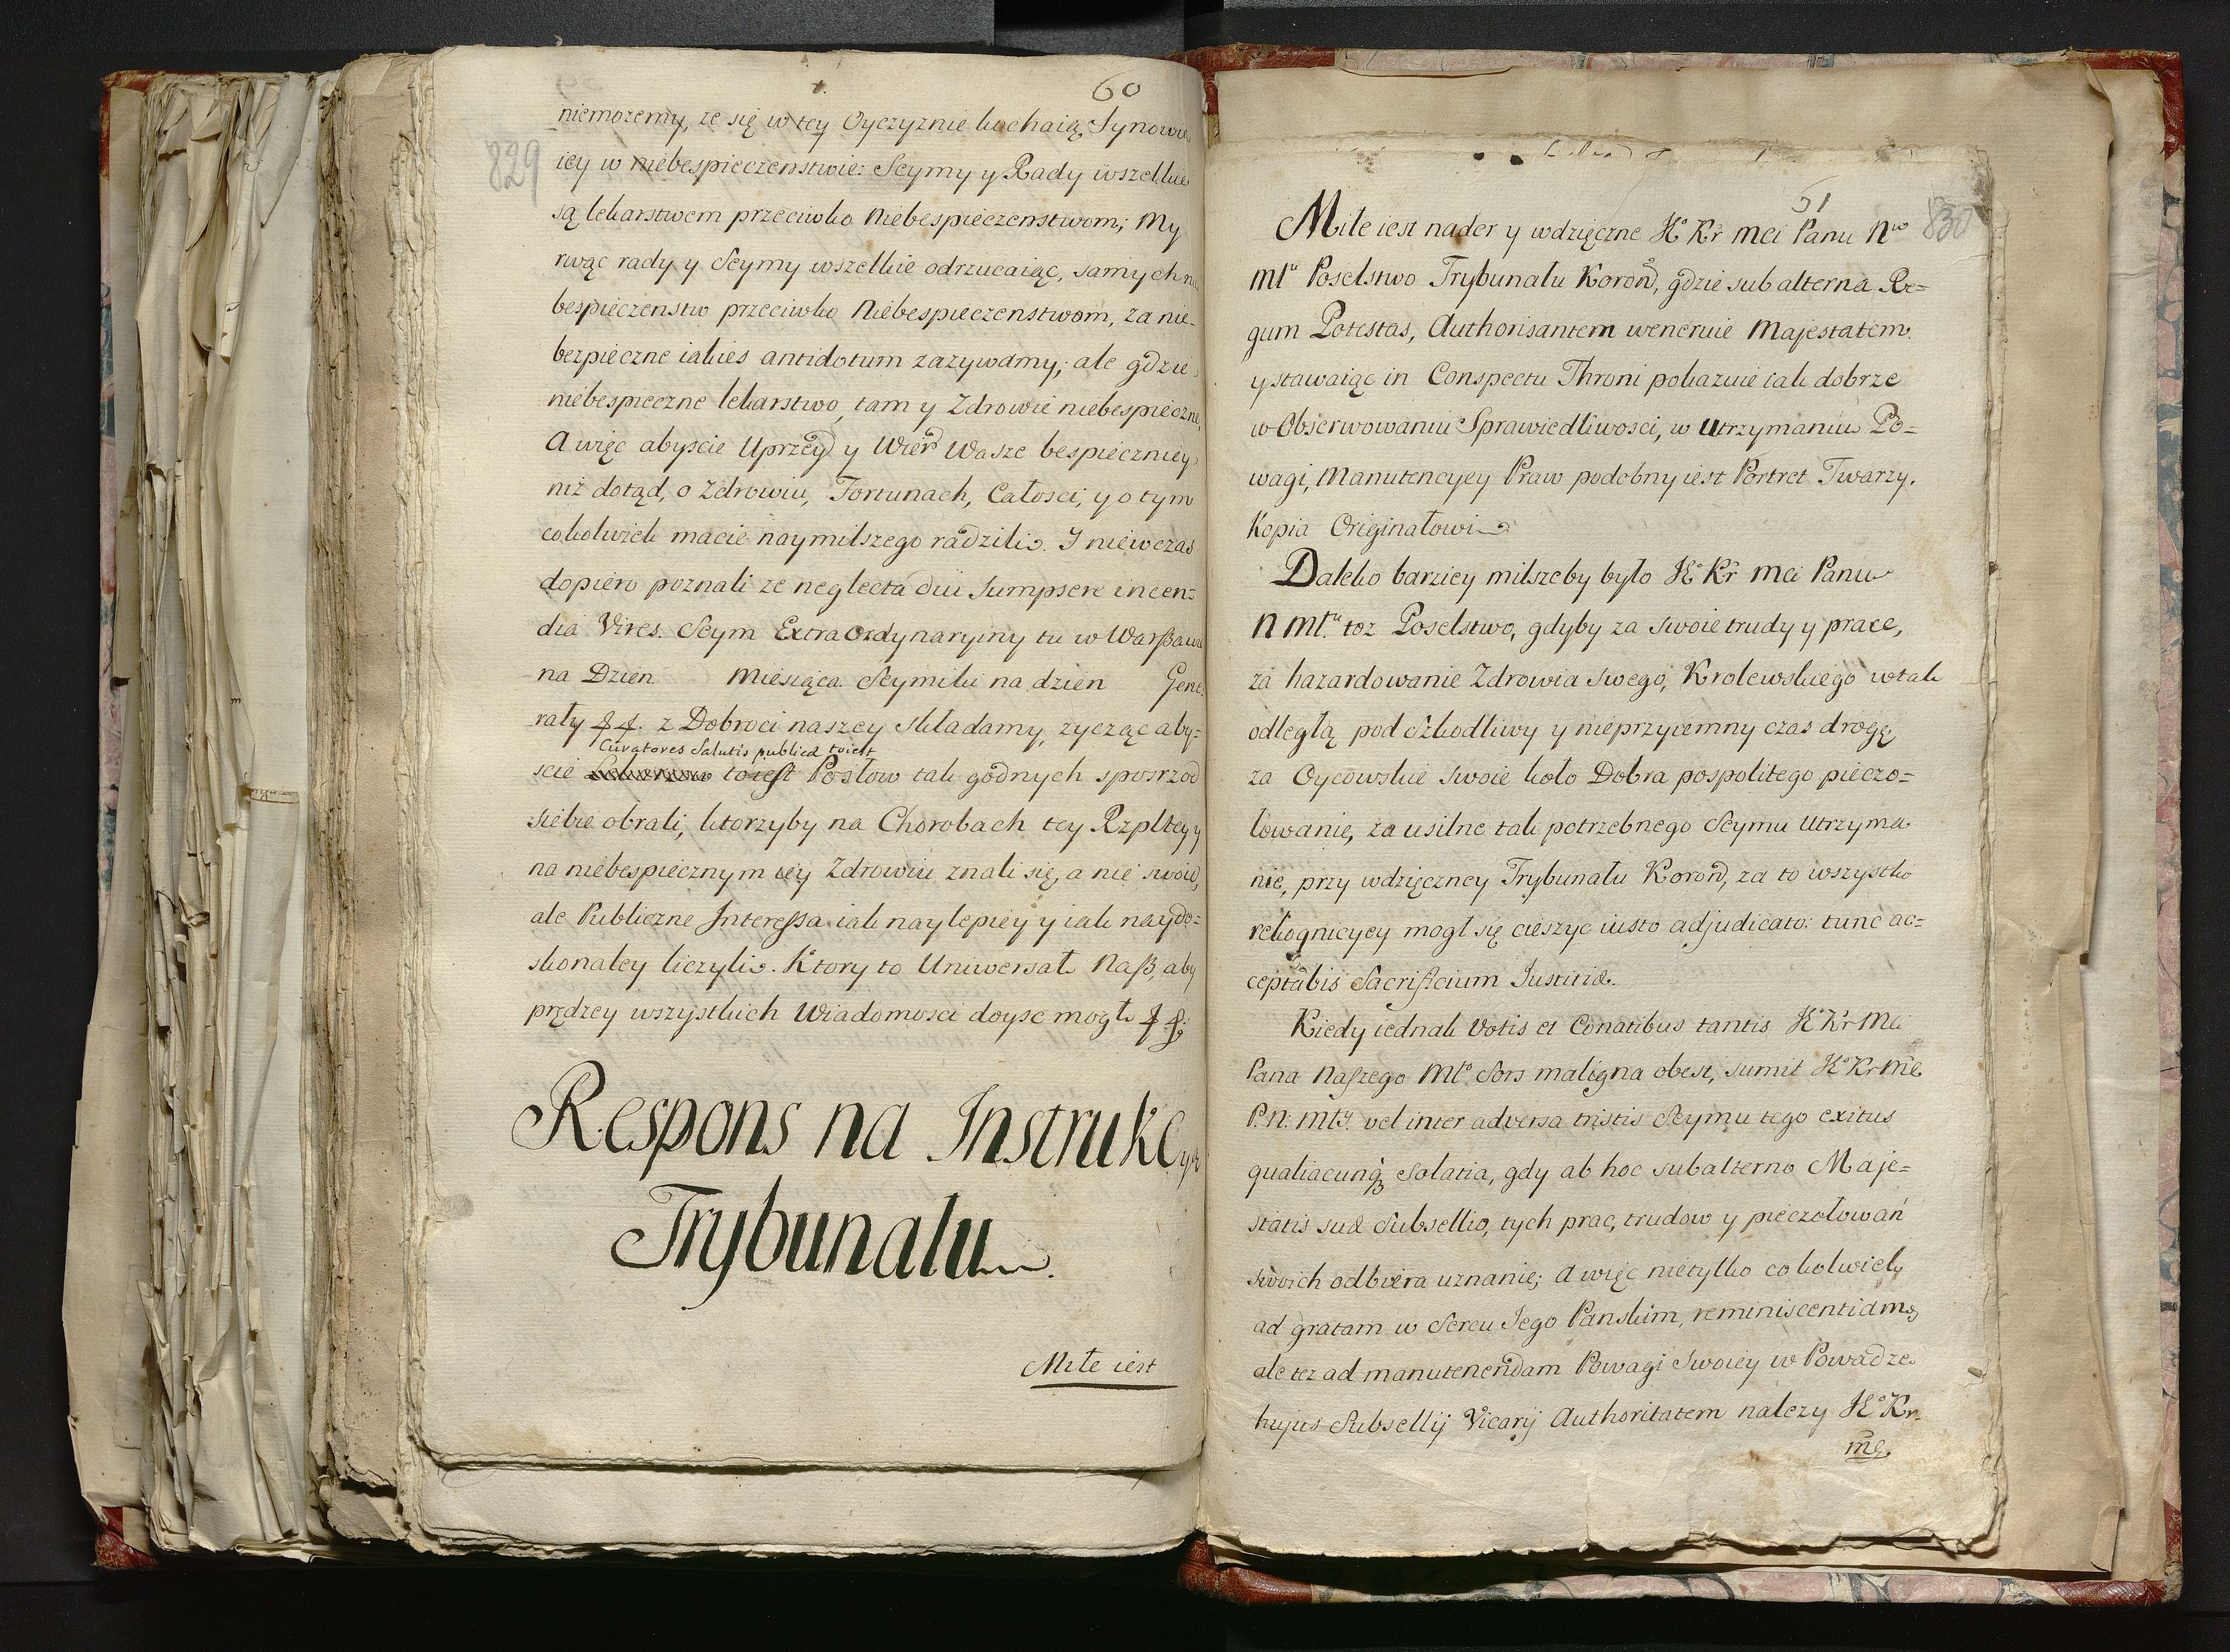 60
829
niemozemy, ze się w tey Oyczyznie kochaią Synowie
iey w niebespieczenstwie: Seymy y Rady wszelkie
są lekarstwem przeciwko Niebespieczenstwom; My
rwąc rady y Seymy wszelkie odrzucaiąc, samych nie
bespieczenstw przeciwko Niebespieczenstwom, za nie-
bezpieczne iakies antidotum zazywamy; ale gdzie
niebespieczne lekarstwo, tam y Zdrowie niebespieczne,
A więc abyscie Uprzeyd y Wierd Wasze bespieczniey
niz dotąd, o Zdrowiu, Fortunach, Całosci, y o tym
cokolwiek macie naymilszego radzili. I niewczas
dopiero poznali ze neglecta diu sumpsere incen=
dia Vires. Seym Extra Ordynaryiny tu w Warßawie
na Dzien Miesiąca Seymiki na dzien Gene
rały ff. z Dobroci naszey składamy, zycząc aby=
Curatores Salutis publicæ toiest
scie toiest Posłow tak godnych sposrzod
siebie obrali, ktorzyby na Chorobach tey Rzpltey y
na niebespiecznym iey Zdrowiu znali się, a nie swoie,
ale Publiczne Interessa iak naylepiey y iak naydo=
skonaley liczyli. Ktory to Uniwersał Naß, aby
prędzey wszystkich Wiadomosci doysc mogł ff.
Respons na Instrukcyą
Trybunału.
Miłe iest
61
830
Miłe iest nader y wdzięczne JKo Kr Mci Panu Nw
Młu Poselstwo Trybunału Koron, gdzie subalterna Re=
gum Potestas, Authorisantem weneruie Majestatem.
y stawaiąc in Conspectu Throni pokazuie iak dobrze
w Obserwowaniu Sprawiedliwosci, w Utrzymaniu Po=
wagi, Manutencyey Praw podobny iest Portret Twarzy.
Kopia Originałowi
Daleko barziey milszeby było JKo Kr Mci Panu
N Młu. toz Poselstwo, gdyby za swoie trudy y prace,
za hazardowanie Zdrowia swego, Krolewskiego w tak
odległą pod szkodliwy y nieprzyiemny czas drogę,
za Oycowskie swoie koło Dobra pospolitego pieczo=
łowanie, za usilne tak potrzebnego Seymu Utrzyma
nie, przy wdzięczney Trybunału Koron, za to wszystko
rekognicyey mogł się cieszyc iusto adjudicato: tunc ac=
ceptabis Sacrificium Iustitiæ.
Kiedy iednak Votis et Conatibus tantis JKo Kr Mci
Pana Naszego Mło Sors maligna obest, sumit JKo Kr Mć
P. N: Mły. vel inter adversa tristis Seymu tego exitus
qualiacunq3 solatia, gdy ab hoc subalterno Maje=
statis suæ Subsellio, tych prac, trudow y pieczołowań
swoich odbiera uznanie; a więc nietylko cokolwiek
ad gratam w Sercu Jego Panskim, reminiscentiam,
ale tez ad manutenendam Powagi Swoiey w Powadze
hujus Subsellij Vicarij Authoritatem nalezy JKo Kr.
Mć